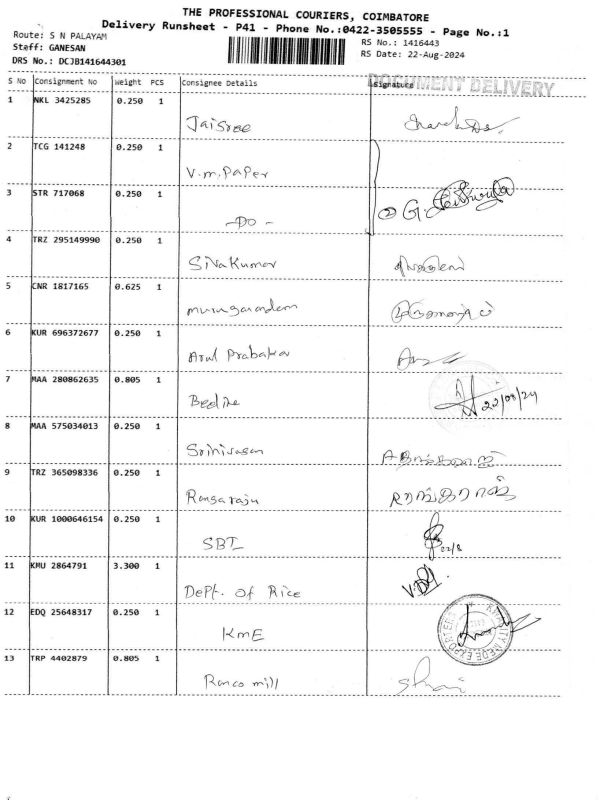 THE PROFESSIONAL COURIERS, COIMBATORE
Delivery Runsheet - P41 - Phone No.:0422-3505555 - Page No.:1
Route: S N PALAYAM
Staff: GANESAN
DRS No.: DCJB141644301
RS No.: 1416443
RS Date: 22-Aug-2024
DOCUMENT DELIVERY
S No Consignment No Weight PCS Consignee Details Signature
1 NKL 3425285 0.250 1
Jaisree
2 TCG 141248 0.250 1
V.m.PaPer
3 STR 717068 0.250 1
-DO-
4 TRZ 295149990 0.250 1
Sivakumar
5 CNR 1817165 0.625 1
6 KUR 696372677 0.250 1
Arul Prabakar
7 MAA 280862635 0.805 1
22/08/24
8 MAA 575034013 0.250 1
Srinivasan
9 TRZ 365098336 0.250 1
Rangaraju ரங்கராஜ்
10 KUR 1000646154 0.250 1
SBI 22/8
11 KMU 2864791 3.300 1
Dept. of Rice
12 EDQ 25648317 0.250 1
KmE
13 TRP 4402879 0.805 1
mill